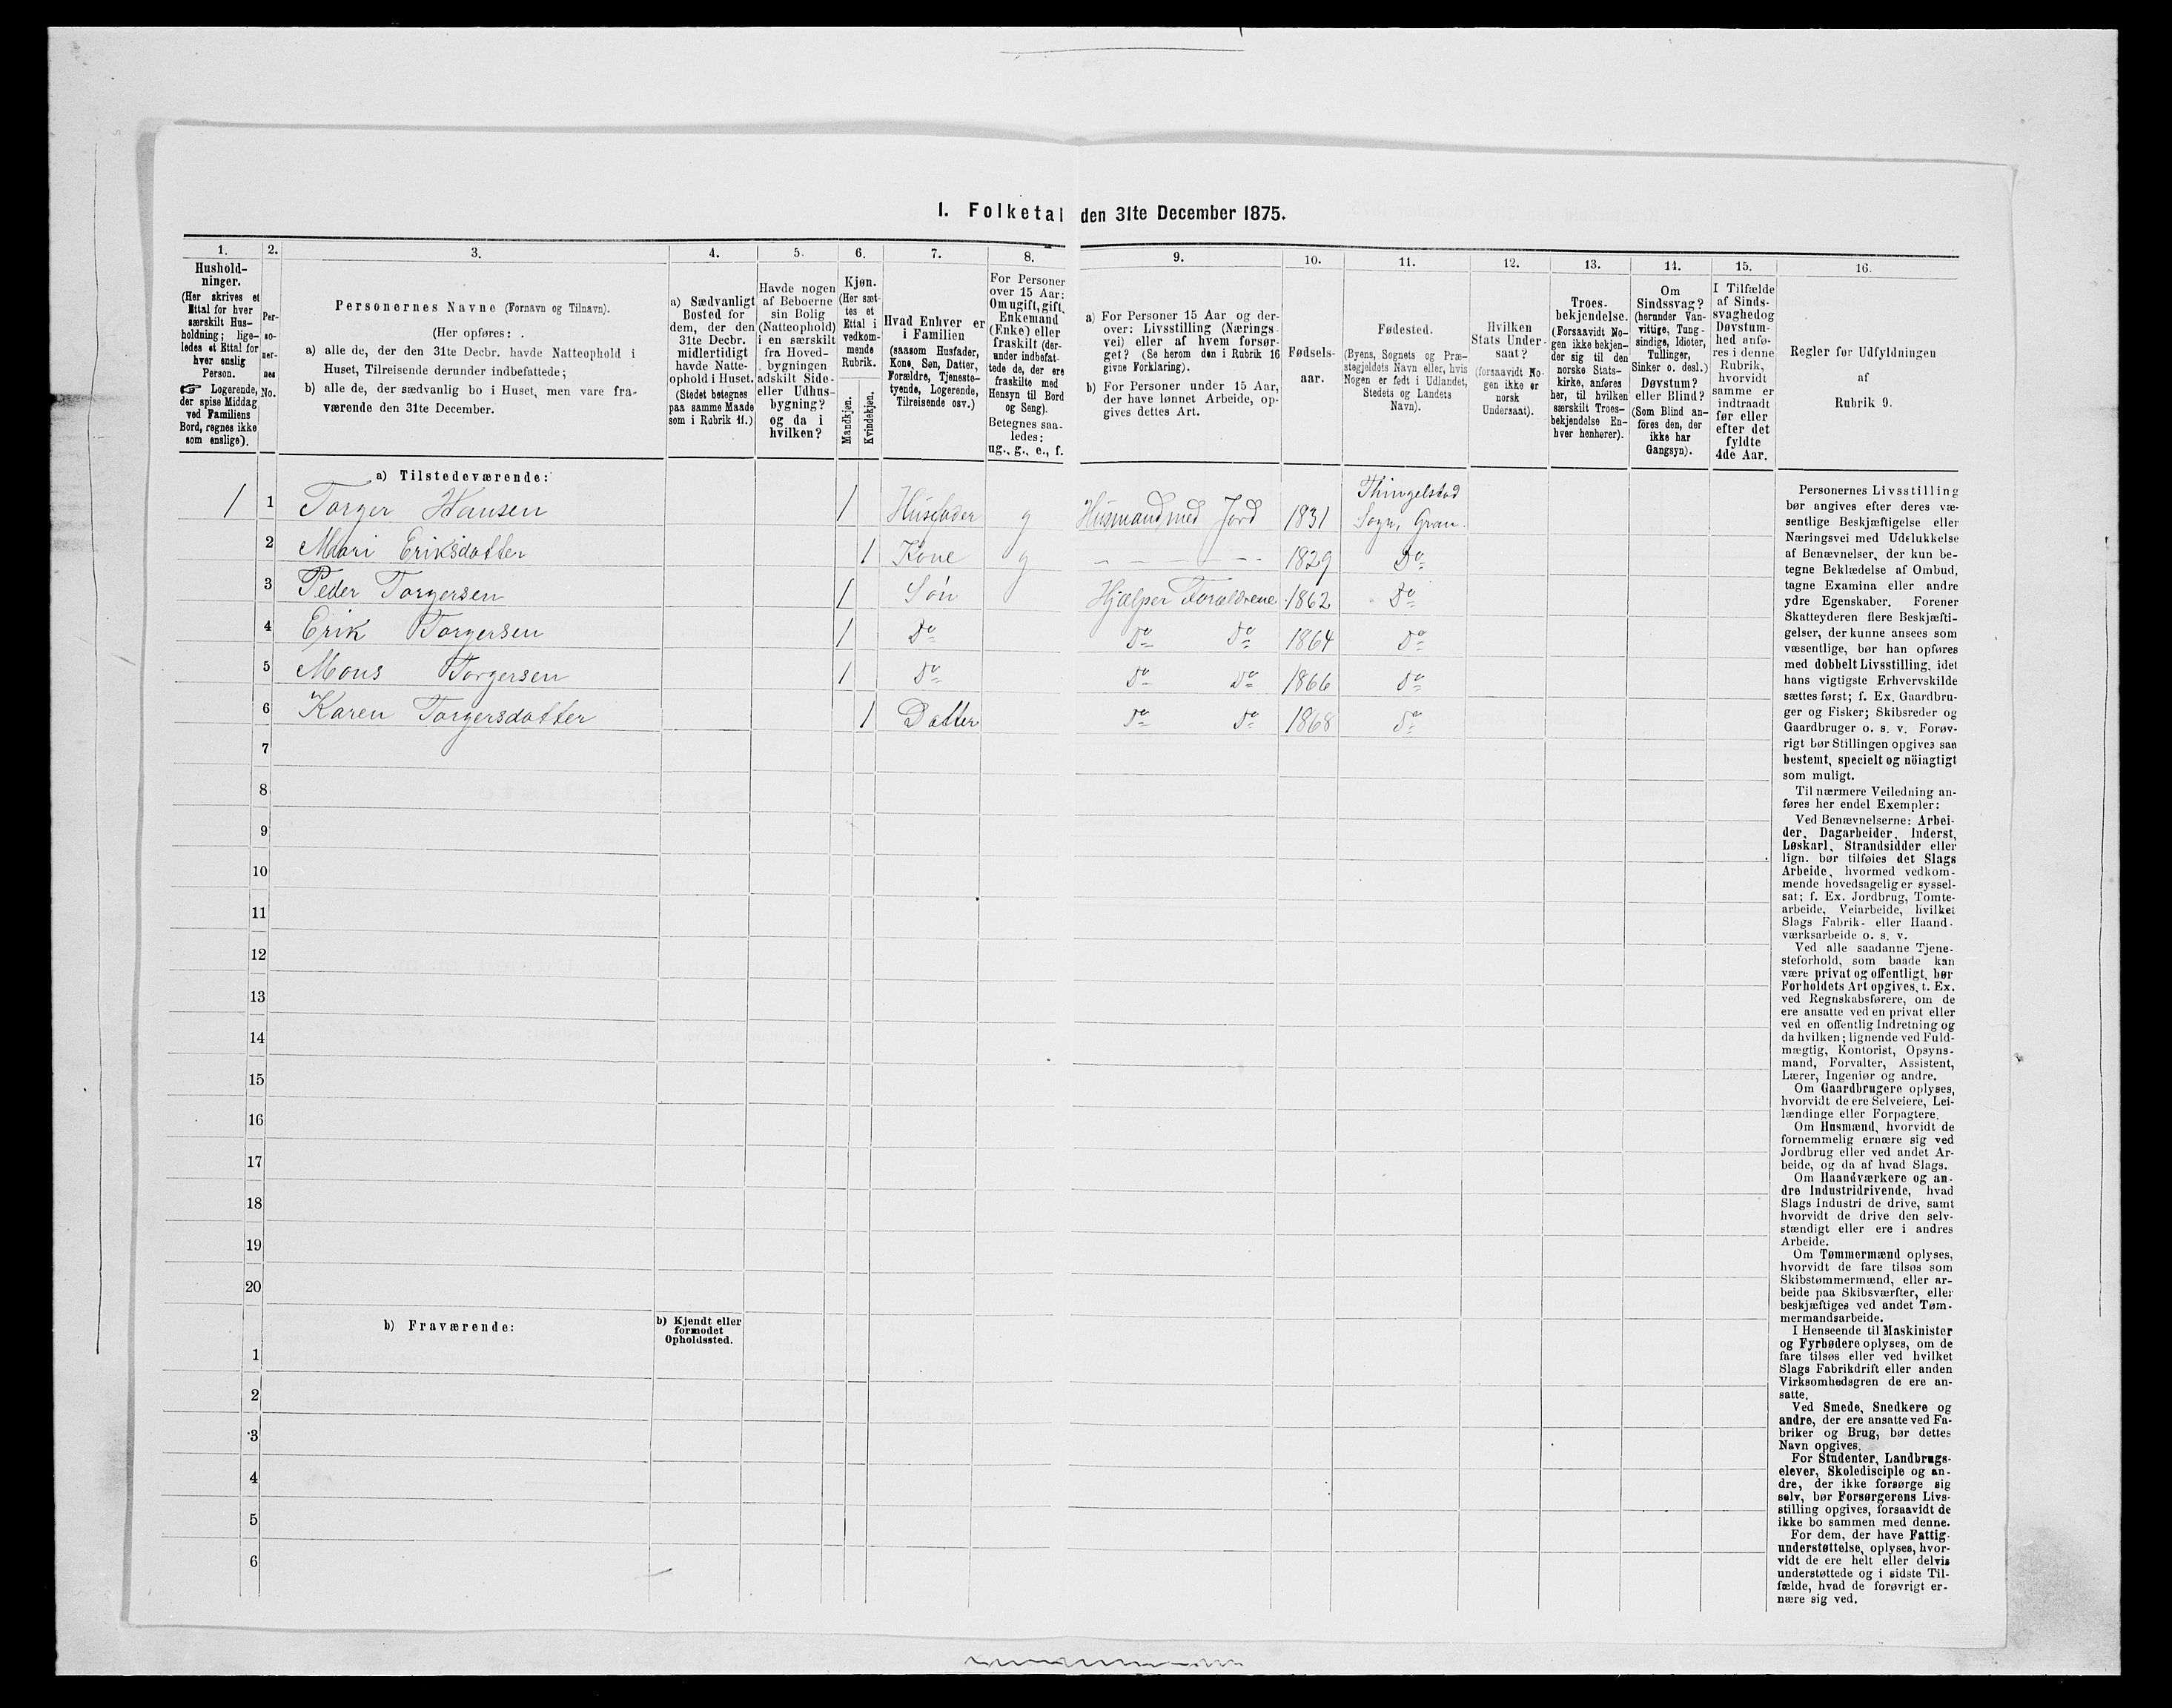 I. Folketal den 31te December 1875.
1.
Hushold-
ninger.
(Her skrives et
Ettal for hver
særskilt Hus-
holdning; lige-
ledes et Ettal for
hver enslig
Person.
☞ Logerende,
der spise Middag
ved Familiens
Bord, regnes ikke
som enslige).
2.
Per-
so-
ner-
nes
No.
3.
Personernes Navne (Fornavn og Tilnavn).
(Her opføres:
a) alle de, der den 31te Decbr. havde Natteophold i
Huset, Tilreisende derunder indbefattede;
b) alle de, der sædvanlig bo i Huset, men vare fra-
værende den 31te December.
4.
a) Sædvanligt
Bosted for
dem, der den
31te Decbr.
midlertidigt
havde Natte-
ophold i Huset.
(Stedet betegnes
paa samme Maade
som i Rubrik 11.)
5.
Havde nogen
af Beboerne
sin Bolig
(Natteophold)
i en særskilt
fra Hoved-
bygningen
adskilt Side-
eller Udhus-
bygning?
og da i
hvilken?
6.
Kjøn.
(Her sæt-
tes et
Ettal i
vedkom-
mende
Rubrik.
Mandkjøn.
Kvindekjøn.
7.
Hvad Enhver er
i Familien
(saasom Husfader,
Kone, Søn, Datter,
Forældre, Tjeneste-
tyende, Logerende,
Tilreisende osv.)
8.
For Personer
over 15 Aar:
Om ugift, gift,
Enkemand
(Enke) eller
fraskilt (der-
under indbefat-
tede de, der ere
fraskilte med
Hensyn til Bord
og Seng).
Betegnes saa-
ledes:
ug., g., e., f.
9.
a) For Personer 15 Aar og der-
over: Livsstilling (Nærings-
vei) eller af hvem forsør-
get? (Se herom den i Rubrik 16
givne Forklaring).
b) For Personer under 15 Aar,
der have lønnet Arbeide, op-
gives dettes Art.
10.
Fødsels-
aar.
11.
Fødested.
(Byens, Sognets og Præ-
stegjeldets Navn eller, hvis
Nogen er født i Udlandet,
Stedets og Landets
Navn).
12.
Hvilken
Stats Under-
saat?
(forsaavidt No-
gen ikke er
norsk
Undersaat).
13.
Troes-
bekjendelse.
(Forsaavidt No-
gen ikke bekjen-
der sig til den
norske Stats-
kirke, anføres
her, til hvilken
særskilt Troes-
bekjendelse En-
hver henhører).
14.
Om
Sindssvag?
(herunder Van-
vittige, Tung-
sindige, Idioter,
Tullinger,
Sinker o. desl.)
Døvstum?
eller Blind?
(Som Blind an-
föres den, der
ikke har
Gangsyn).
15.
I Tilfælde
af Sinds-
svaghed og
Døvstum-
hed anfø-
res i denne
Rubrik,
hvorvidt
samme er
indtraadt
før eller
efter det
fyldte
4de Aar.
16.
Regler for Udfyldningen
af
Rubrik 9.
a) Tilstedeværende:
1 1 Torger Hansen 1 Husfader g Husmand med Jord 1831 Thingelstad
Sogn, Gran.
2 Mari Eriksdatter 1 Kone g — — — — — 1829 Do
3 Peder Torgersen 1 Søn Hjælper Forældrene 1862 Do
4 Erik Torgersen 1 Do Do Do 1864 Do
5 Mons Torgersen 1 Do Do Do 1866 Do
6 Karen Torgersdatter 1 Datter Do Do 1868 Do
7
8
9
10
11
12
13
14
15
16
17
18
19
20
b) Fraværende:
b) Kjendt eller
formodet
Opholdssted.
1
2
3
4
5
6
Personernes Livsstilling
bør angives efter deres væ-
sentlige Beskjæftigelse eller
Næringsvei med Udelukkelse
af Benævnelser, der kun be-
tegne Beklædelse af Ombud,
tagne Examina eller andre
ydre Egenskaber. Forener
Skatteyderen flere Beskjæfti-
gelser, der kunne ansees som
væsentlige, bør han opføres
med dobbelt Livsstilling, idet
hans vigtigste Erhvervskilde
sættes først; f. Ex. Gaardbru-
ger og Fisker; Skibsreder og
Gaardbruger o. s. v. Forøv-
rigt bør Stillingen opgives saa
bestemt, specielt og nöiagtigt
som muligt.
Til nærmere Veiledning an-
føres her endel Exempler:
Ved Benævnelserne: Arbei-
der, Dagarbeider, Inderst,
Løskarl, Strandsidder eller
lign. bør tilføies det Slags
Arbeide, hvormed vedkom-
mende hovedsagelig er syssel-
sat; f. Ex. Jordbrug, Tomte-
arbeide, Veiarbeide, hvilket
Slags Fabrik- eller Haand-
værksarbeide o. s. v.
Ved alle saadanne Tjene-
steforhold, som baade kan
være privat og offentligt, bør
Forholdets Art opgives, t. Ex.
ved Regnskabsførere, om de
ere ansatte ved en privat eller
ved en offentlig Indretning og
da hvilken; lignende ved Fuld-
mægtig, Kontorist, Opsyns-
mand, Forvalter, Assistent,
Lærer, Ingeniør og andre.
Om Gaardbrugere oplyses,
hvorvidt de ere Selveiere, Lei-
lændinge eller Forpagtere.
Om Husmænd, hvorvidt de
fornemmelig ernære sig ved
Jordbrug eller ved andet Ar-
beide, og da af hvad Slags.
Om Haandværkere og an-
dre Industridrivende, hvad
Slags Industri de drive, samt
hvorvidt de drive den selv-
stændigt eller ere i andres
Arbeide.
Om Tømmermænd oplyses,
hvorvidt de fare tilsøs som
Skibstømmermænd, eller ar-
beide paa Skibsværfter, eller
beskjæftiges ved andet Tøm-
mermandsarbeide.
I Henseende til Maskinister
og Fyrbødere oplyses, om de
fare tilsøs eller ved hvilket
Slags Fabrikdrift eller anden
Virksomhedsgren de ere an-
satte.
Ved Smede, Snedkere og
andre, der ere ansatte ved Fa-
briker og Brug, bør dettes
Navn opgives.
For Studenter, Landbrugs-
elever, Skoledisciple og an-
dre, der ikke forsørge sig
selv, bør Forsørgerens Livs-
stilling opgives, forsaavidt de
ikke bo sammen med denne.
For dem, der have Fattig-
understøttelse, oplyses, hvor-
vidt de ere helt eller delvis
understøttede og i sidste Til-
fælde, hvad de forøvrigt er-
nære sig ved.